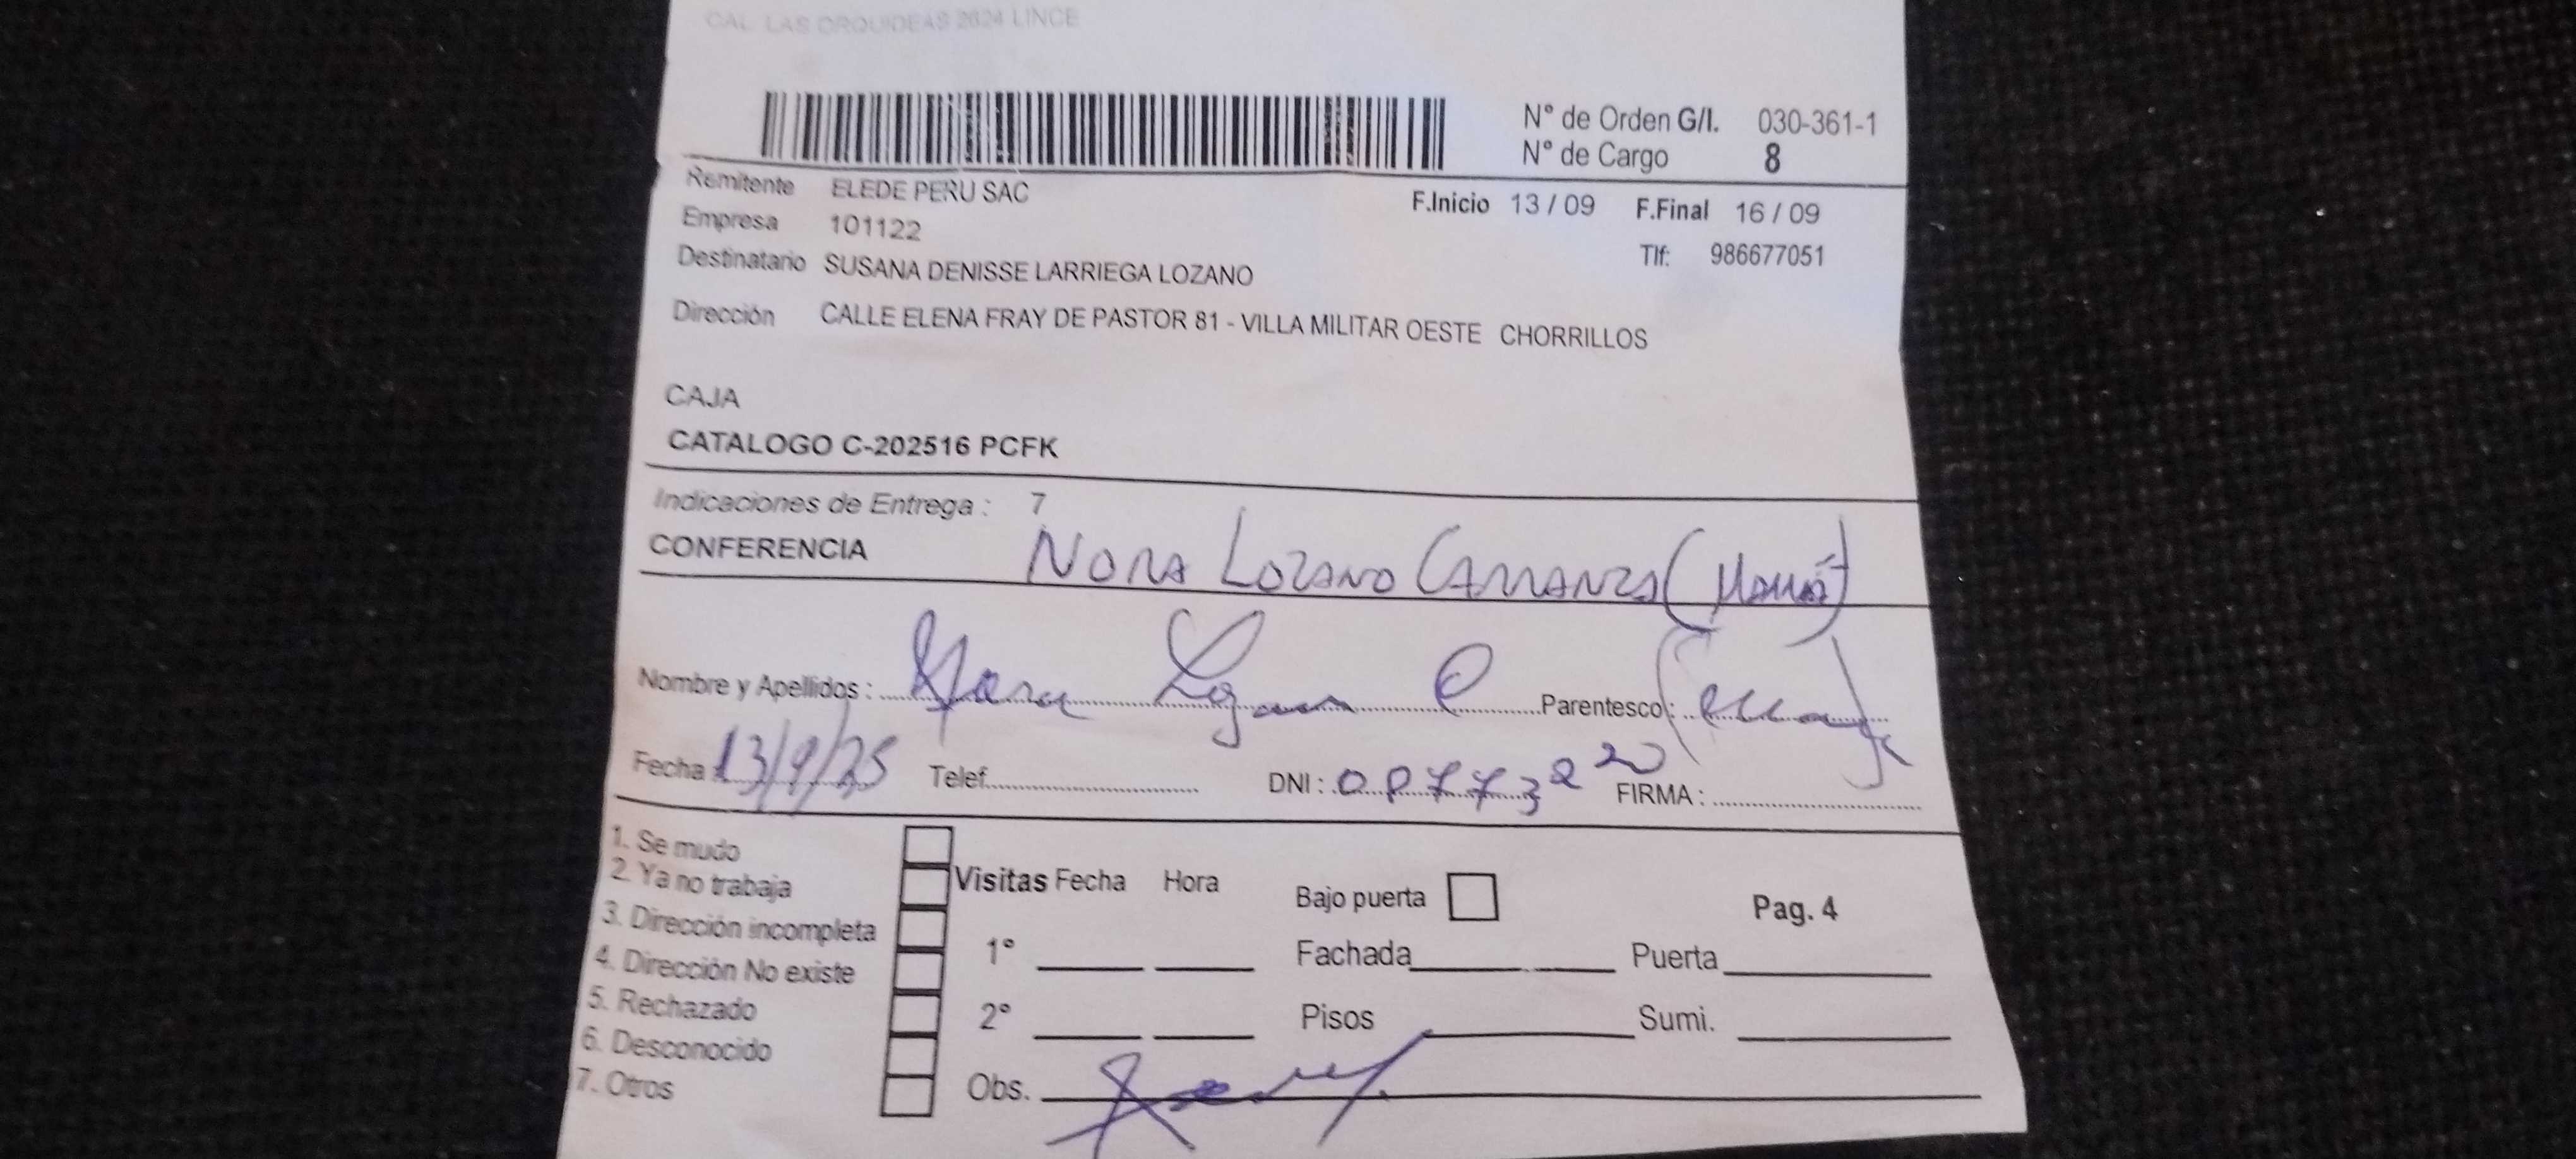 CAL. LAS ORQUIDEAS 2624 LINCE
N° de Orden G/I. 030-361-1
N° de Cargo 8
Remitente ELEDE PERU SAC
F.Inicio 13 / 09 F.Final 16 / 09
Empresa 101122
Tlf: 986677051
Destinatario SUSANA DENISSE LARRIEGA LOZANO
Dirección CALLE ELENA FRAY DE PASTOR 81 - VILLA MILITAR OESTE CHORRILLOS
CAJA
CATALOGO C-202516 PCFK
Indicaciones de Entrega : 7
CONFERENCIA
NORA LOZANO CARRANZA (MAMÁ)
Nombre y Apellidos : Nora Lozano C Parentesco :
Fecha 13/9/25 Telef. DNI : FIRMA :
1. Se mudo
2. Ya no trabaja
3. Dirección incompleta
4. Dirección No existe
5. Rechazado
6. Desconocido
7. Otros
Visitas Fecha Hora
1°
2°
Bajo puerta
Pag. 4
Fachada Puerta
Pisos Sumi.
Obs.